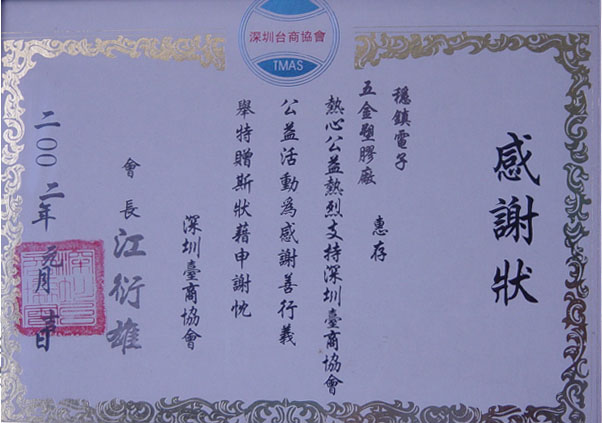 深圳台商協會
TMAS
感謝狀
穩鎮電子
五金塑膠廠 惠存
熱心公益熱烈支持深圳臺商協會
公益活動為感謝善行義
舉特贈斯狀藉申謝忱
深圳臺商協會
會長 江衍雄
二00二年元月 日